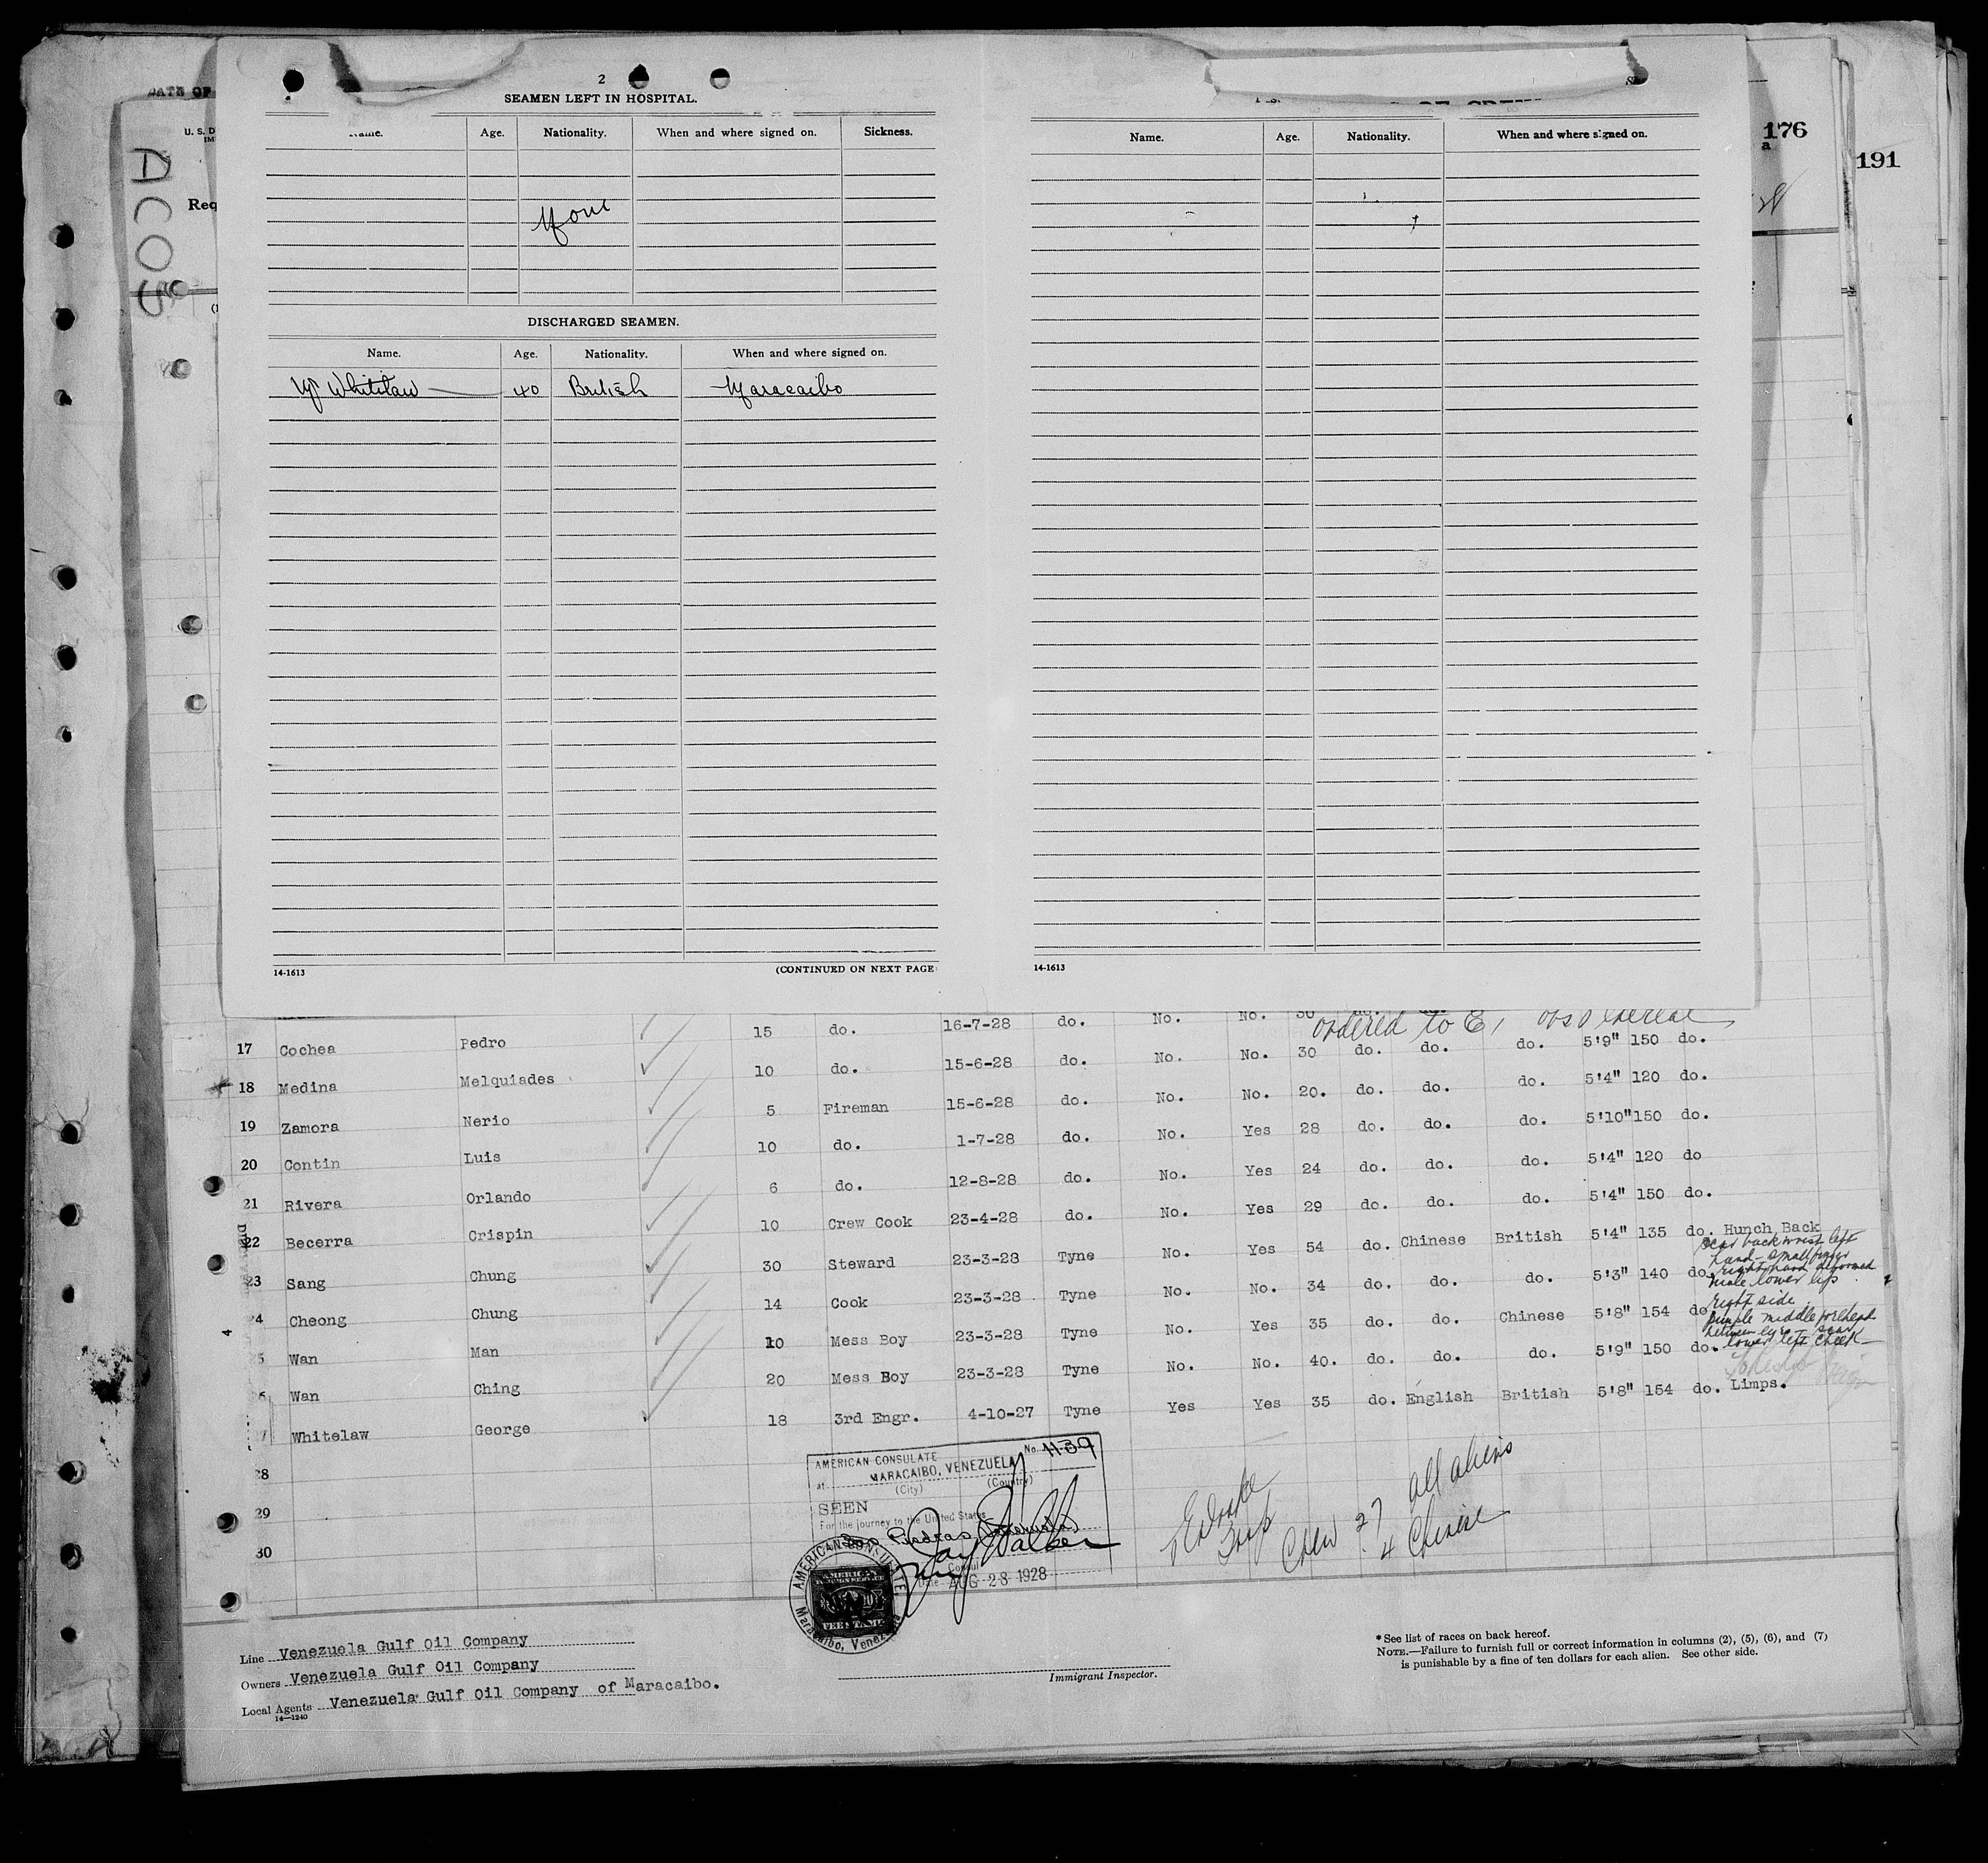 DATE OF
U. S. D
IM
ACOS
Req
176
a
191
2
SEAMEN LEFT IN HOSPITAL.
Name. Age. Nationality. When and where signed on. Sickness.
None
DISCHARGED SEAMEN.
Name. Age. Nationality. When and where signed on.
Whitelaw 40 British Maracaibo
14-1613 (CONTINUED ON NEXT PAGE
Name. Age. Nationality. When and where signed on.
14-1613
15 do. 16-7-28 do. No. No. 30
ordered to
17 Cochea Pedro 10 do. 15-6-28 do. No. No. 30 do. do. do. 5'9" 150 do.
18 Medina Melquiades 5 Fireman 15-6-28 do. No. No. 20. do. do. do. 5'4" 120 do.
19 Zamora Nerio 10 do. 1-7-28 do. No. Yes 28 do. do. do. 5'10" 150 do.
20 Contin Luis 6 do. 12-8-28 do. No. Yes 24 do. do. do. 5'4" 120 do
21 Rivera Orlando 10 Crew Cook 23-4-28 do. No. Yes 29 do. do. do. 5'4" 150 do.
22 Becerra Crispin 30 Steward 23-3-28 Tyne No. Yes 54 do. Chinese British 5'4" 135 do. Hunch Back
23 Sang Chung 14 Cook 23-3-28 Tyne No. No. 34 do. do. do. 5'3" 140 do.
scar back wrist left
hand - small finger
right hand deformed
mole lower lip
right side
24 Cheong Chung 10 Mess Boy 23-3-28 Tyne No. Yes 35 do. do. Chinese 5'8" 154 do
pimple middle forehead
between eyes - scar
lower left cheek
5 Wan Man 20 Mess Boy 23-3-28 Tyne No. No. 40. do. do. do. 5'9" 150 do.
6 Wan Ching 18 3rd Engr. 4-10-27 Tyne Yes Yes 35 do. English British 5'8" 154 do. Limps.
7 Whitelaw George
28
29
30
4
AMERICAN CONSULATE No. 1139
at MARACAIBO, VENEZUELA
(City) (Country)
SEEN
For the journey to the United States
Piedras, Venezuela
Jay Walker
Consul
Date AUG 28 1928
AMERICAN CONSULATE
Maracaibo, Venezuela
AMERICAN
FEE STAMP
Crew 27 all aliens
4 Chinese
Line Venezuela Gulf Oil Company
Owners Venezuela Gulf Oil Company
Local Agents Venezuela Gulf Oil Company of Maracaibo.
14-1240
Immigrant Inspector.
* See list of races on back hereof.
NOTE.—Failure to furnish full or correct information in columns (2), (5), (6), and (7)
is punishable by a fine of ten dollars for each alien. See other side.